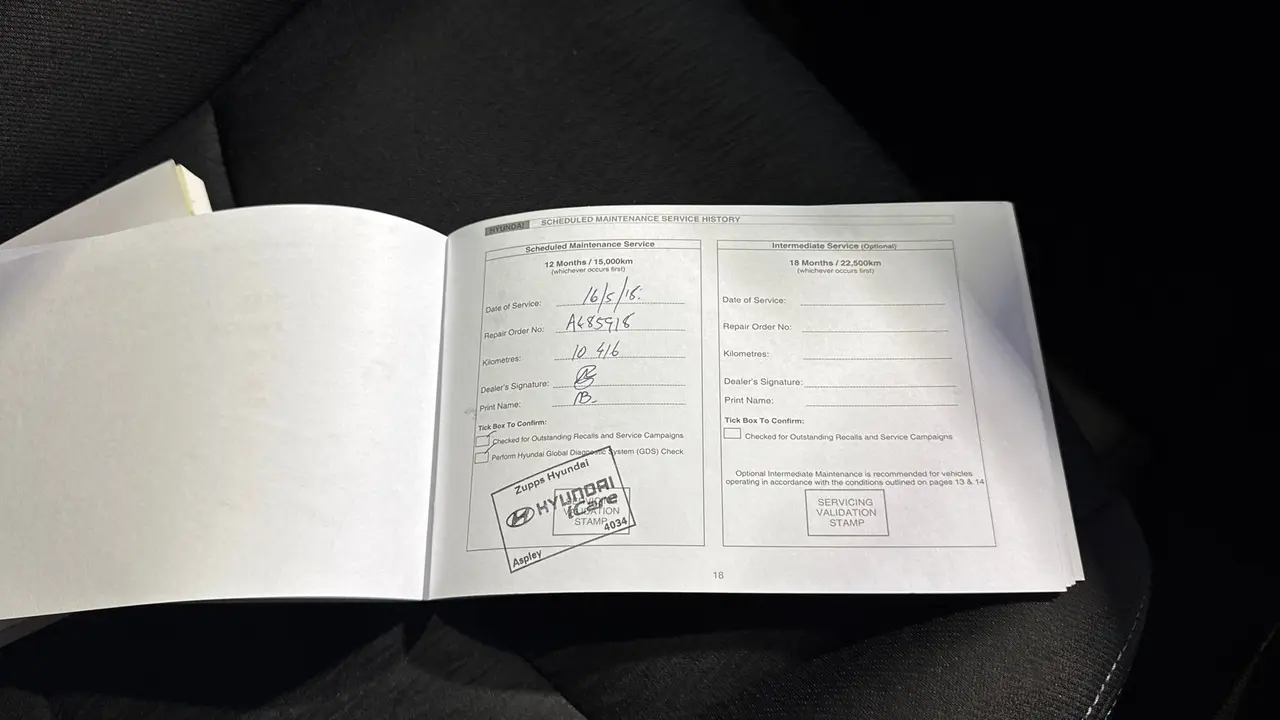 HYUNDAI SCHEDULED MAINTENANCE SERVICE HISTORY
Scheduled Maintenance Service
12 Months / 15,000km
(whichever occurs first)
Date of Service: 16/5/18.
Repair Order No: A485918
Kilometres: 10 416
Dealer's Signature:
Print Name:
Tick Box To Confirm:
Checked for Outstanding Recalls and Service Campaigns
Perform Hyundai Global Diagnostic System (GDS) Check
Zupps Hyundai
HYUNDAI
iCare
4034
Aspley
SERVICING
VALIDATION
STAMP
Intermediate Service (Optional)
18 Months / 22,500km
(whichever occurs first)
Date of Service:
Repair Order No:
Kilometres:
Dealer's Signature:
Print Name:
Tick Box To Confirm:
Checked for Outstanding Recalls and Service Campaigns
Optional Intermediate Maintenance is recommended for vehicles
operating in accordance with the conditions outlined on pages 13 & 14
SERVICING
VALIDATION
STAMP
18